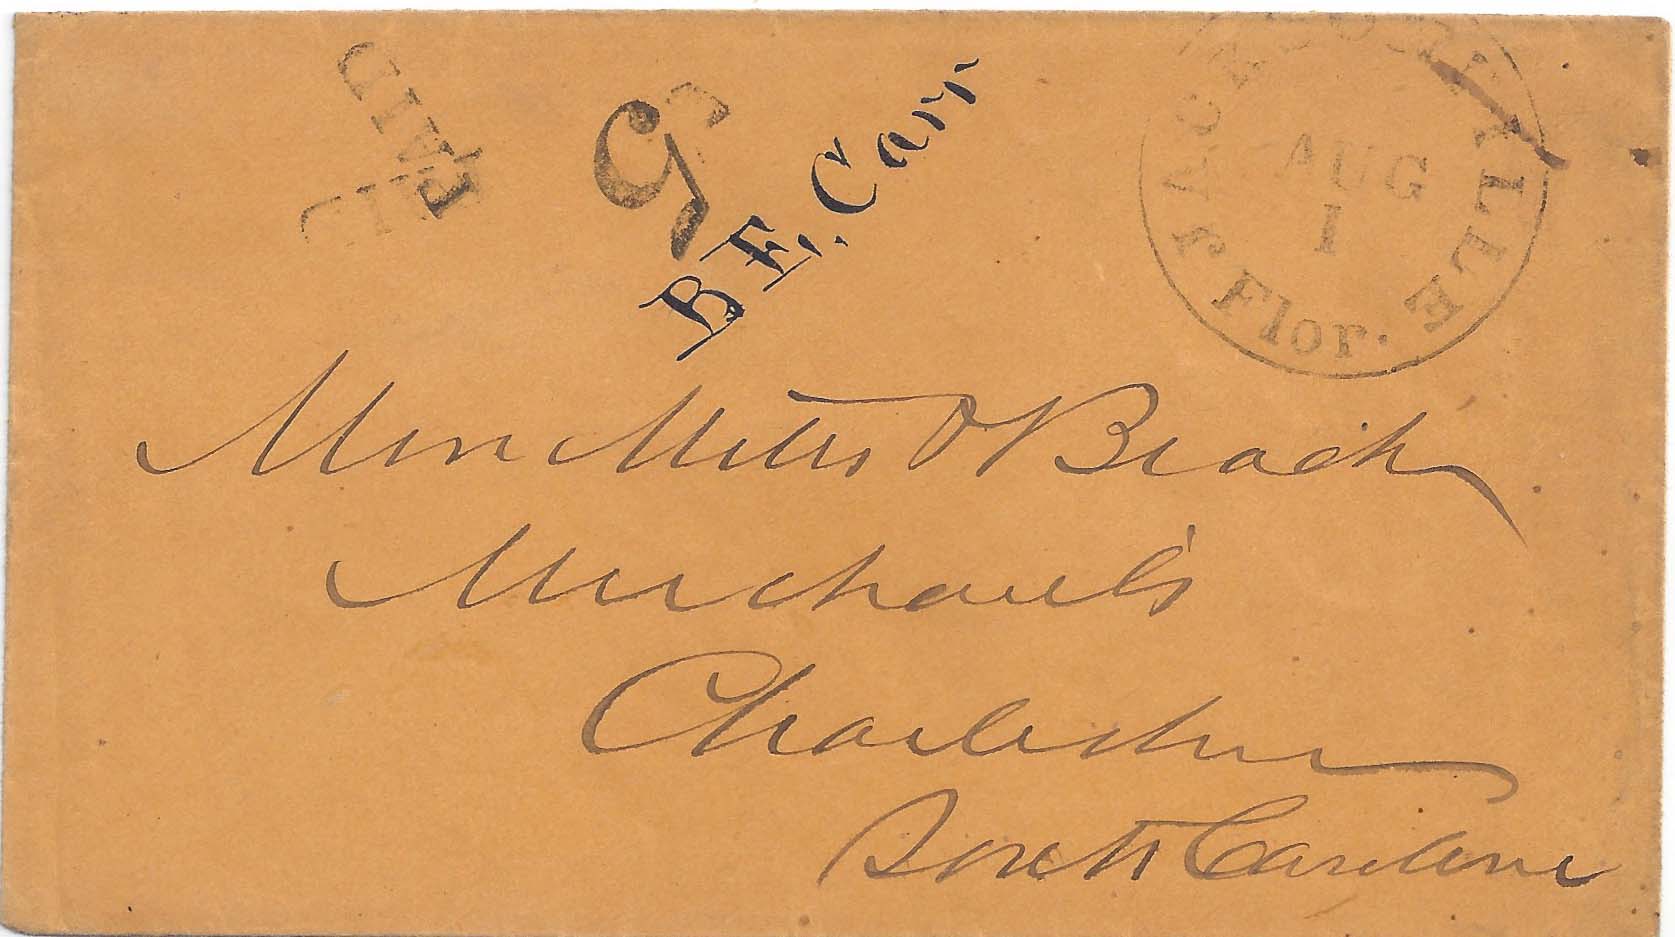 PAID
PAID
5
B. F. Carr
JACKSONVILLE
Flor.
AUG
1
Mills & Beach
Merchants
Charleston
South Carolina